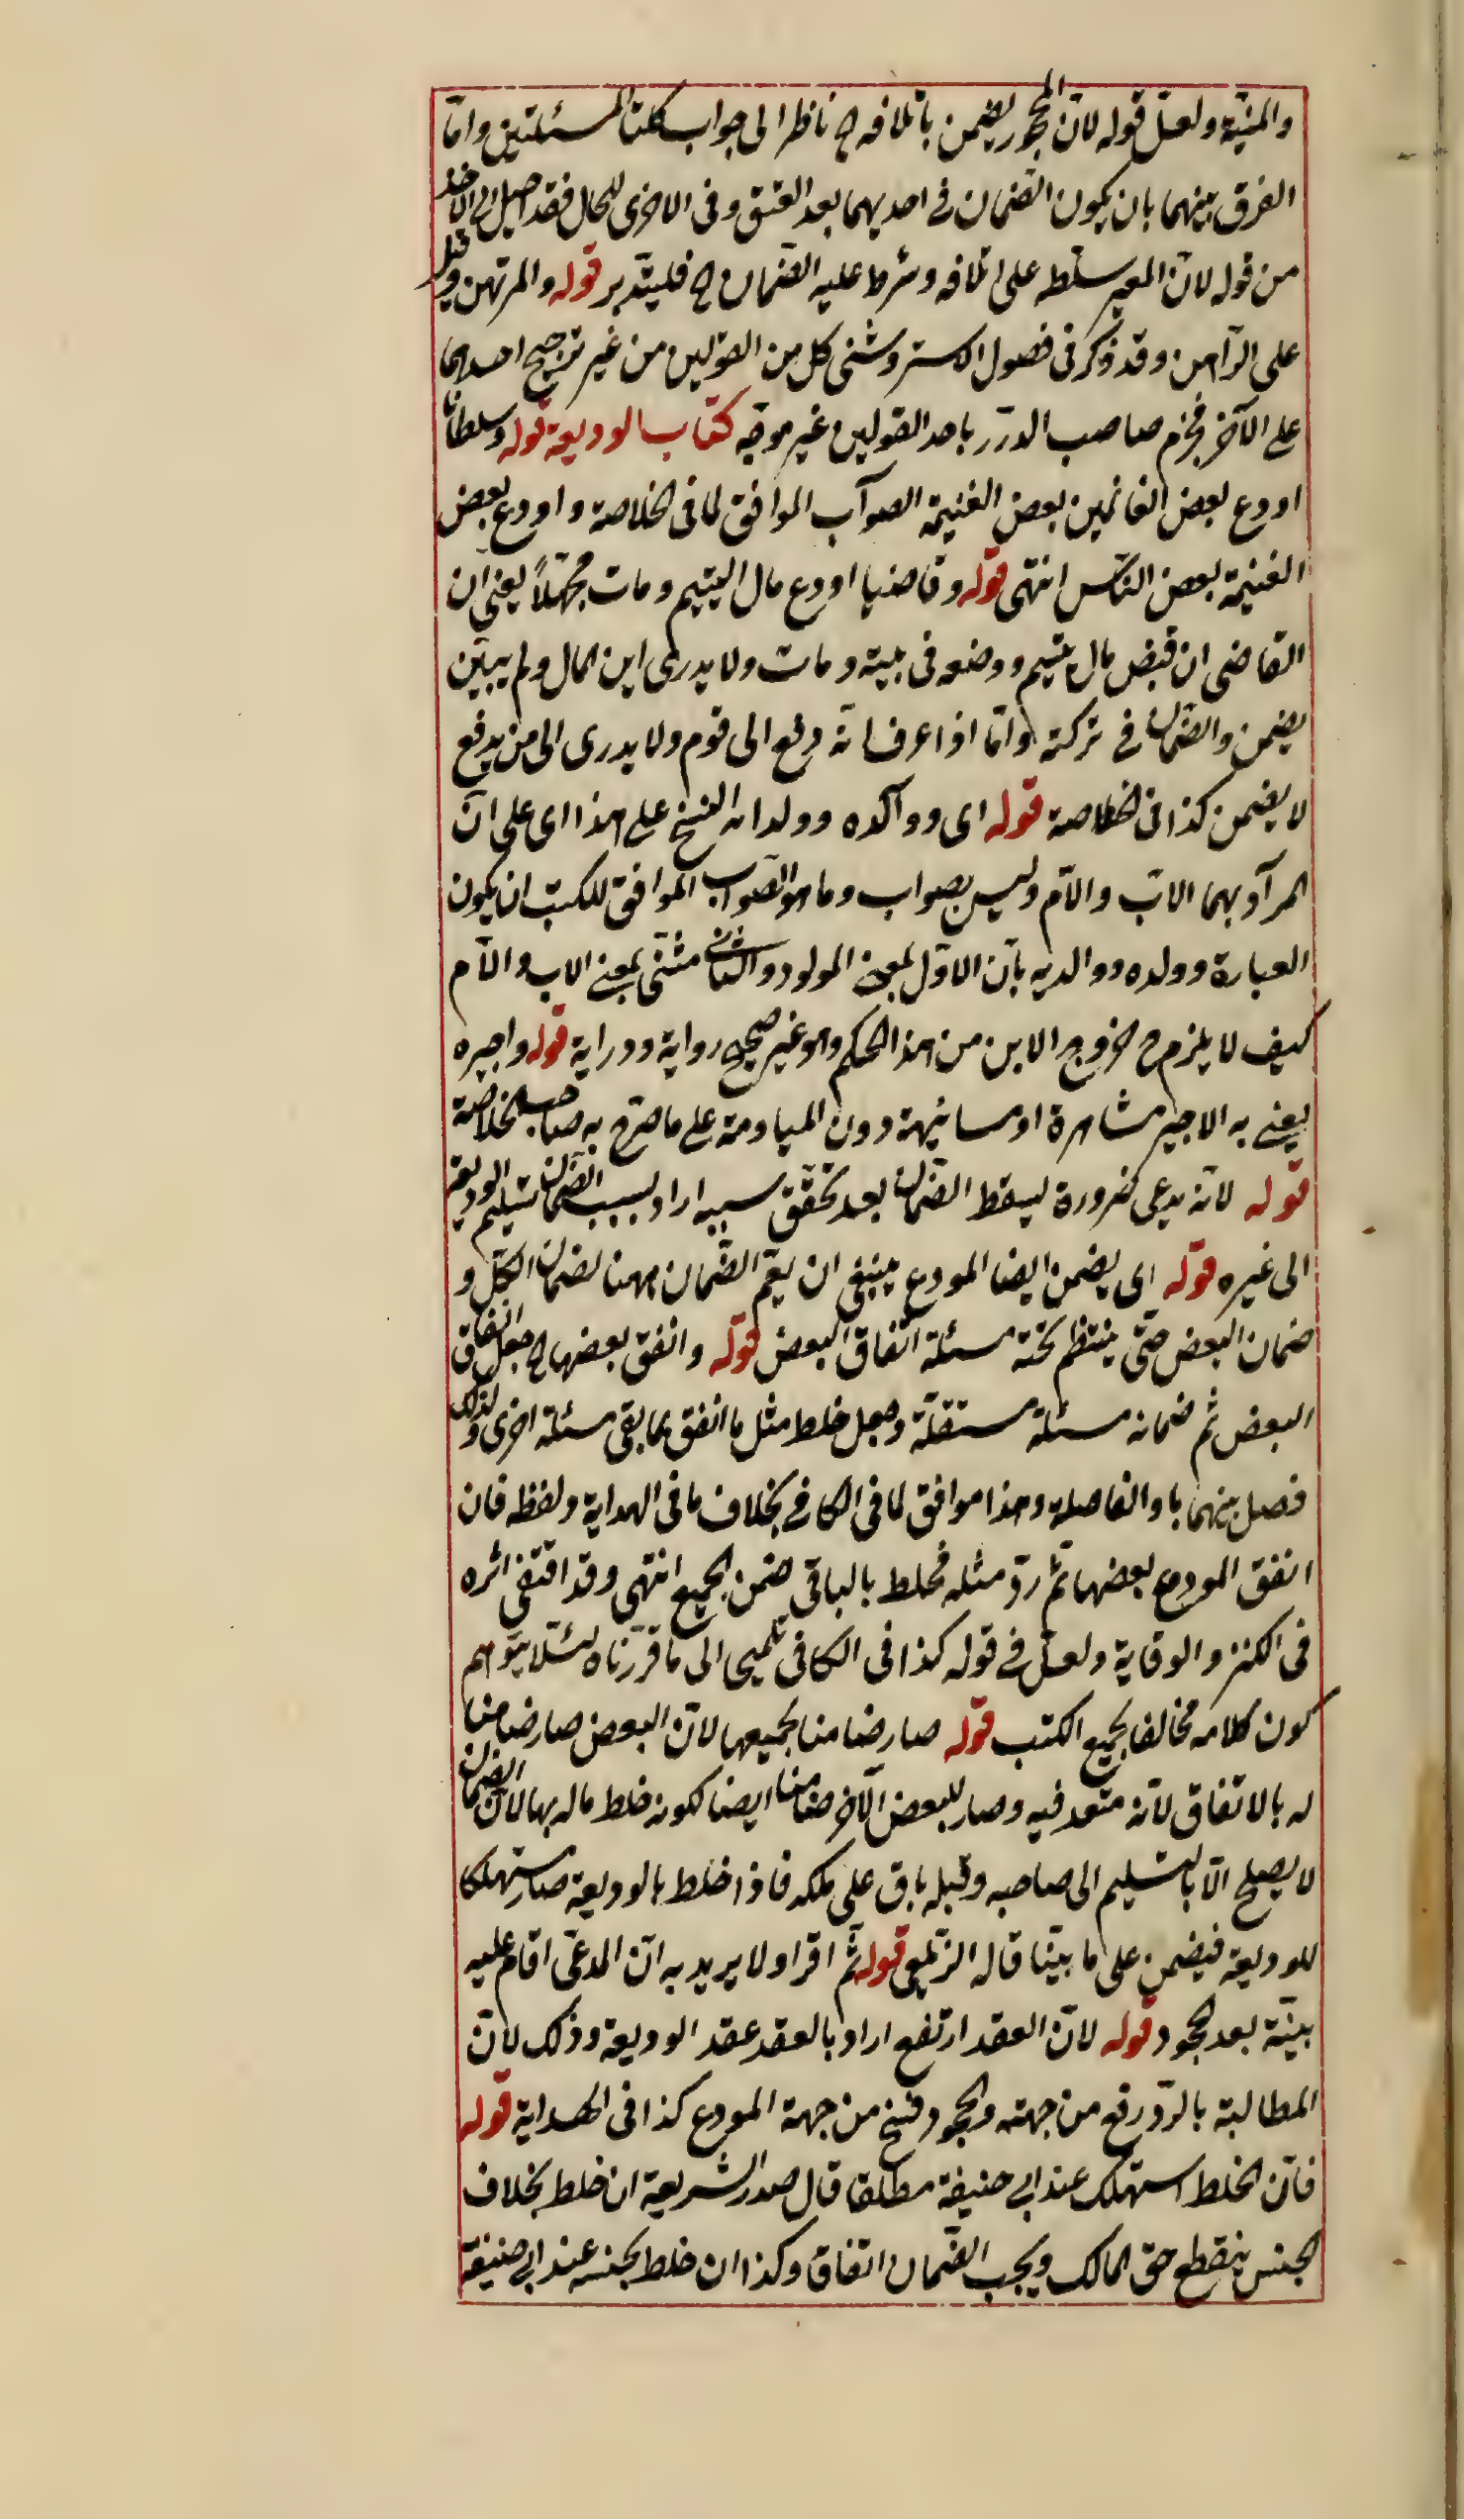 والمنية ولعل قوله لان المحجور يضمن باتلافه ح ناظر الى جواب كلتا المسئلتين واما
الفرق بينهما بان يكون الضمان في احديهما بعد العتق وفى الاخرى للحال فقد احيل الى الاخذ
من قوله لان المعير سلّطه على اتلافه وشرط عليه الضمان ح فليتدبر قوله والمرتهن وقيل
على الراهن وقد ذكر فى فصول الاستروشنى كل من القولين من غير ترجيح احدهما
على الآخر فجزم صاحب الدرر باحد القولين غير موجّه كتاب الوديعة قوله وسلطانا
اودع بعض الغانمين بعض الغنيمة الصواب الموافق لما فى الخلاصة واودع بعض
الغنيمة بعض الناس انتهى قوله وقاضيا اودع مال اليتيم ومات مجهّلاً يعنى ان
القاضى ان قبض مال يتيم ووضعه فى بيته ومات ولا يدرى اين المال ولم يبيّن
يضمن والضمان في تركته واما اذا عرف انه دفع الى قوم ولا يدرى الى من يدفع
لا يضمن كذا فى الخلاصة قوله اى ووالده وولداه النسخ على هذا اى على ان
المراد بهما الاب والام وليس بصواب وما هو الصواب الموافق للكتب ان يكون
العبارة وولده ووالديه بان الاول بمعنى المولود والثانى مثنّى بمعنى الاب والام
كيف لا يلزم ح خروج الابن من هذا الحكم وهو غير صحيح رواية ودراية قوله واجيره
يعنى به الاجير مشاهرة او مسانهة دون المياومة على ما صرّح به صاحب الخلاصة
قوله لانه يدعى ضرورة ليسقط الضمان بعد تحقّق سببه اراد بسبب الضمان تسليم الوديعة
الى غيره قوله اى يضمن ايضا المودع ينبغى ان يعمّ الضمان ههنا لضمان الكلّ و
ضمان البعض حتّى ينتظم تحته مسئلة انفاق البعض قوله وانفق بعضها ح جعل انفاق
البعض ثم ضمانه مسئلة مستقلّة وجعل خلط مثل ما انفق بما بقى مسئلة اخرى ولذلك
فصل بينهما باو الفاصلة وهذا موافق لما فى الكافى بخلاف ما فى الهداية ولفظه فان
انفق المودع بعضها ثم ردّ مثله فخلط بالباقى ضمن الجميع انتهى وقد اقتفى اثره
فى الكنز والوقاية ولعلّ فى قوله كذا فى الكافى تلميحا الى ما قرّرناه لئلا يتوهم
كون كلامه مخالفا لجميع الكتب قوله صار ضامنا لجميعها لان البعض صار ضامنا
له بالاتفاق لانه متعد فيه وصار للبعض الآخر ضامنا ايضا لكونه خلط ماله بها لان الضمان
لا يصلح الا بالتسليم الى صاحبه وقبله باق على ملكه فاذا خلط بالوديعة صار مستهلكا
للوديعة فيضمن على ما بيّنا قاله الزيلعى قوله ثم اقر او لا يريد به ان المدعى اقام عليه
بينّة بعد الجحود قوله لان العقد ارتفع اراد بالعقد عقد الوديعة وذلك لان
المطالبة بالردّ رفع من جهته والجحود فسخ من جهة المودع كذا فى الهداية قوله
فان الخلط استهلاك عند ابى حنيفة مطلقا قال صدر الشريعة ان خلط بخلاف
الجنس ينقطع حق المالك ويجب الضمان اتفاقا وكذا ان خلط بجنسه عند ابى حنيفة